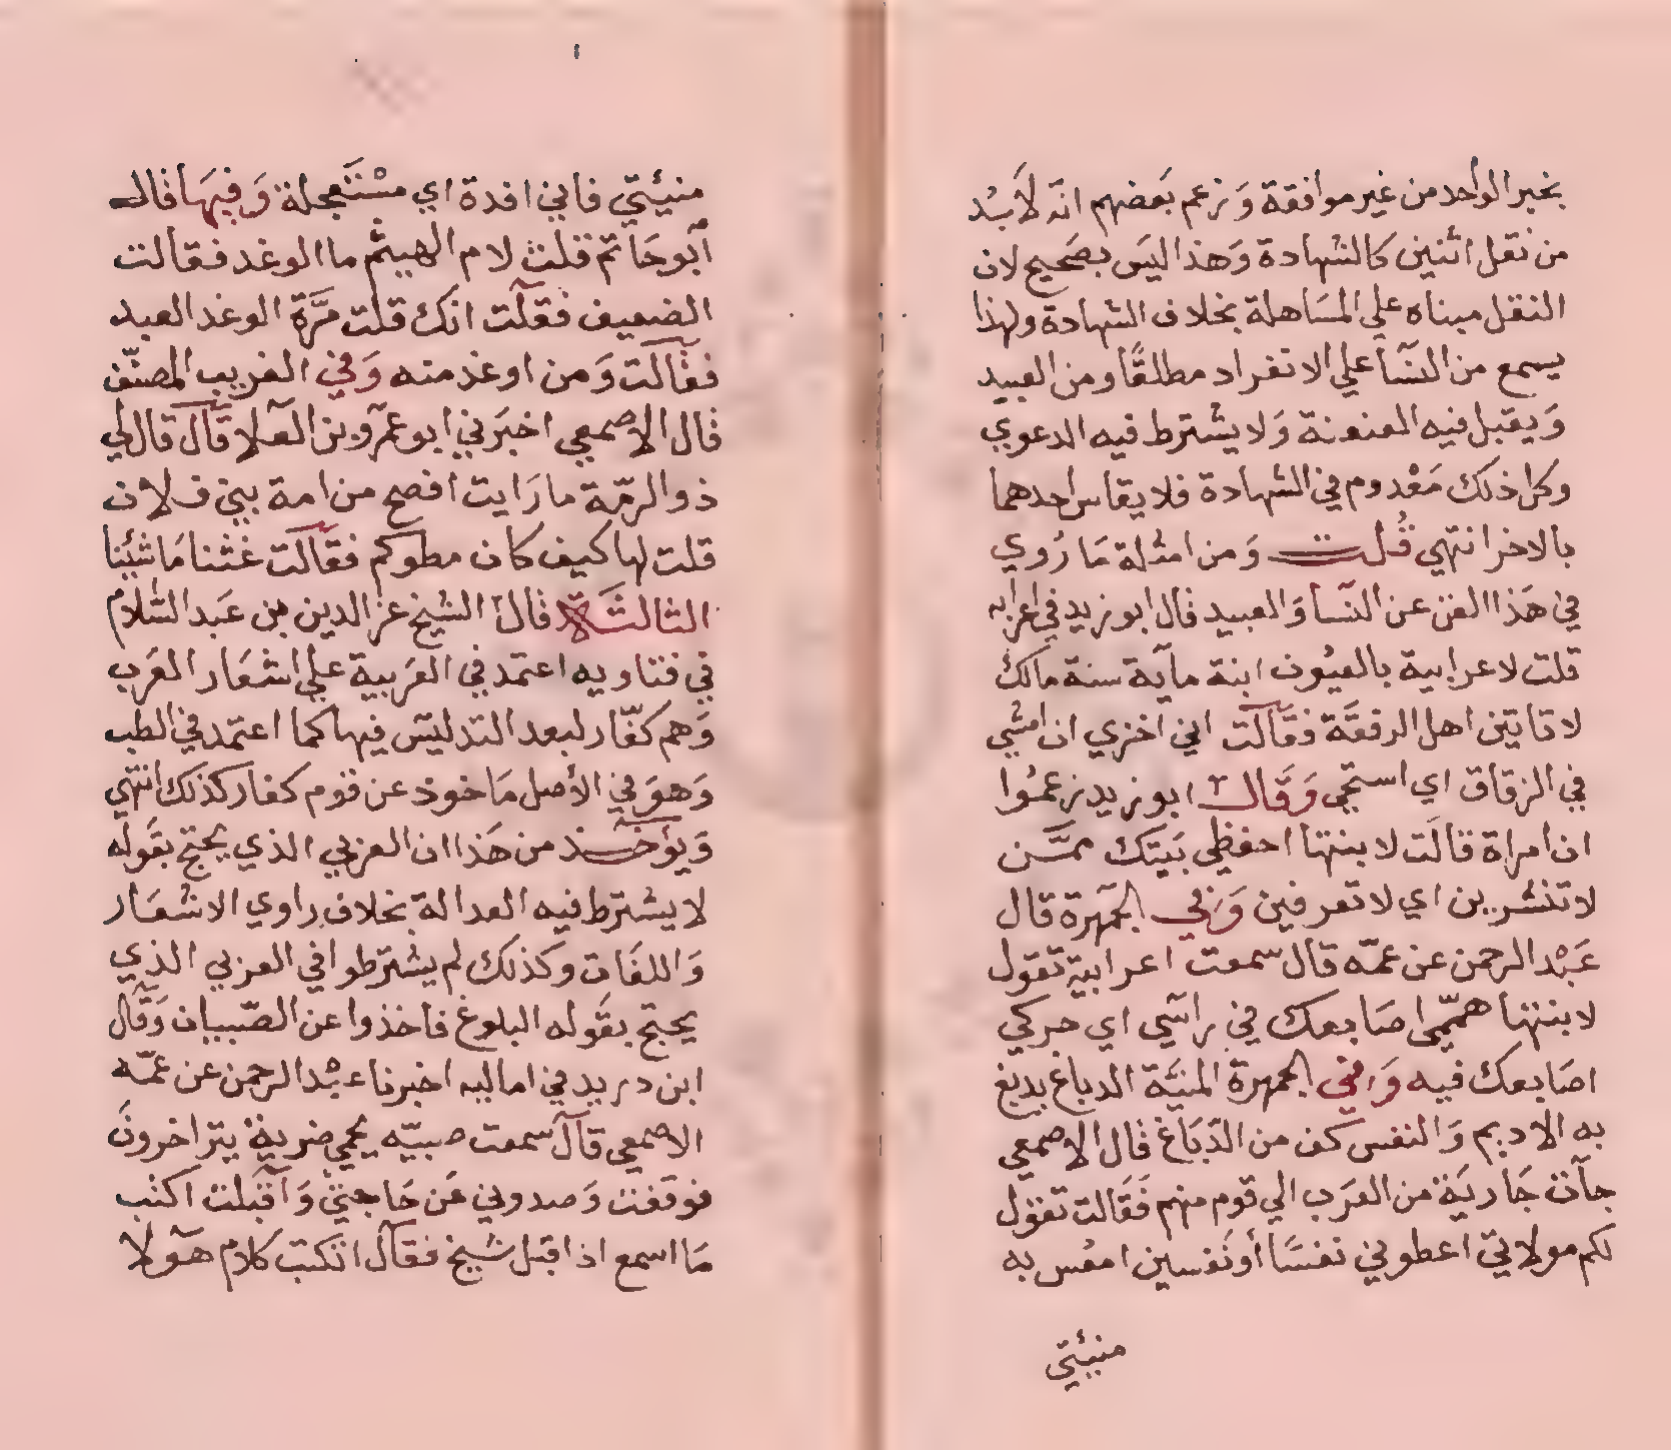 بخبر الواحد من غير موافقة وَزعم بَعضهم انه لاَبُد
من نقل اثنين كالشهادة وَهذا ليَس بصَحيح لان
النقل مبناه علي المسَاهلة بخلاف الشهادة ولهذا
يسمع من النسَآ علي الانفراد مطلقًا ومن العبيد
وَيقبل فيه العنعنة وَلا يشترط فيه الدعوي
وكل ذلك مَعْدوم في الشهادة فلا يقاس احدهما
بالاخر انتهي قُلت وَمن امثلة مَا رُوي
في هَذا الفن عن النسَآ وَالعبيد قال ابو زيد في اعرابه
قلت لاعرابية بالعيُون ابنة مآية سنة مالك
لا تاتين اهل الرفقَة فقَالَت اني اخزي ان امشي
في الزقاق اي استحي وَقَال ابو زيد زعمُوا
ان امراة قالَت لابنتها احفظي بَيتك ممَّن
لا تنشرين اي لا تعرفين وَفي الجمَهرة قال
عَبْد الرحمن عن عمّه قال سمعت اعرابية تقول
لابنتها همّمي اصَابعك في راسَي اي حركي
اصَابعك فيه وَفي الجمهرة المنيَّة الدباغ يدبغ
به الاديم وَالنفس كف من الدّبَاغ قال الاصمعي
جآت جَاريَة من العرَب الي قوم منهم فقَالت تقول
لكم مولاتي اعطوني نفسًا أو نفسين امعُس به
منيئتي
منيئتي فاني افدة اي مسْتَعجلة وَفيهَا قال
أبو حَاتم قلت لام الهيثم ما الوغد فقالت
الضعيف فقلَت انك قلت مَرَّة الوغد العبد
فقالَت وَمن اوغد منه وَفي الغريب المصنّف
قال الاصمعي اخبَرني ابو عمرو بن العَلا قَالَ قال لي
ذو الرمّة ما رَايت افصح من امة بني فلان
قلت لها كيف كان مطركم فقَالَت غثنا مَا شئنا
الثالثَة قال الشيخ عز الدين بن عَبد السَّلام
في فتاويه اعتمد في العَربية علي اشعَار العَرب
وَهم كفّار لبعد التدليسَ فيها كما اعتمد في الطب
وَهوَ في الأصل مَاخوذ عن قوم كفار كذلك انتهي
وَيوَخَذ من هَذا ان العربي الذي يحتج بقَوله
لا يشترط فيه العدالة بخلاف راوي الاشعَار
وَاللغَات وكذلك لم يشترطوا في العربي الذي
يحتج بقَوله البلوغ فاخذوا عن الصّبيان وَقَال
ابن دريد في اماليه اخبرنا عبْد الرحمن عن عمّه
الاصمعي قال سمعت صبيّه بحمي ضرية يتراجزونَ
فوقفت وَصدوني عَن حَاجتي وَاقبَلت اكتب
مَا اسمع اذ اقبل شيخ فقَال اتكتب كلام هَولا